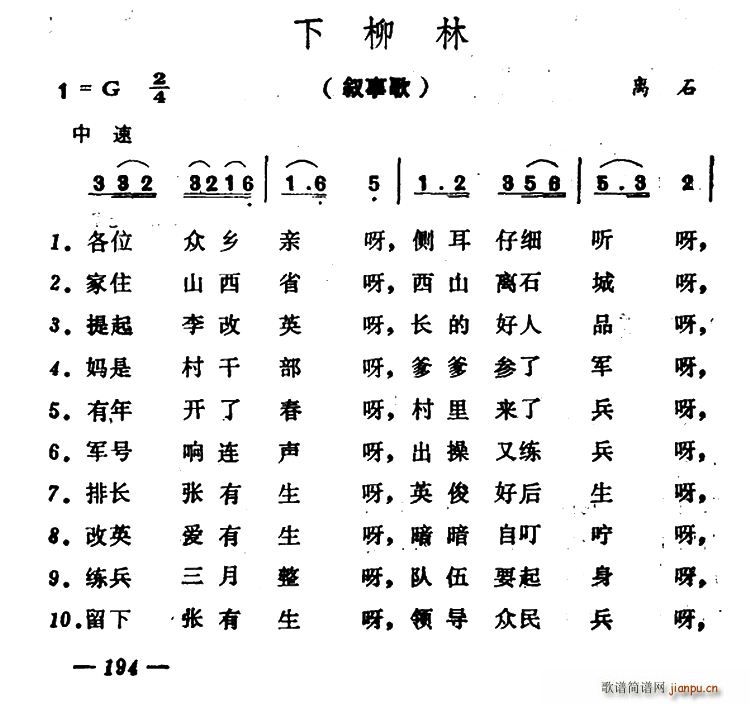 下柳林
1 = G 2/4 （叙事歌） 离石
中速
3 3 2 3 2 1 6 | 1 . 6 5 | 1 . 2 3 5 6 | 5 . 3 2 |
1. 各位 众乡亲 呀, 侧耳仔细听 呀,
2. 家住 山西省 呀, 西山离石城 呀,
3. 提起 李改英 呀, 长的好人品 呀,
4. 妈是 村干部 呀, 爹爹参了军 呀,
5. 有年 开了春 呀, 村里来了兵 呀,
6. 军号 响连声 呀, 出操又练兵 呀,
7. 排长 张有生 呀, 英俊好后生 呀,
8. 改英 爱有生 呀, 暗暗自叮咛 呀,
9. 练兵 三月整 呀, 队伍要起身 呀,
10. 留下 张有生 呀, 领导众民兵 呀,
— 194 —
歌谱简谱网 jianpu.cn